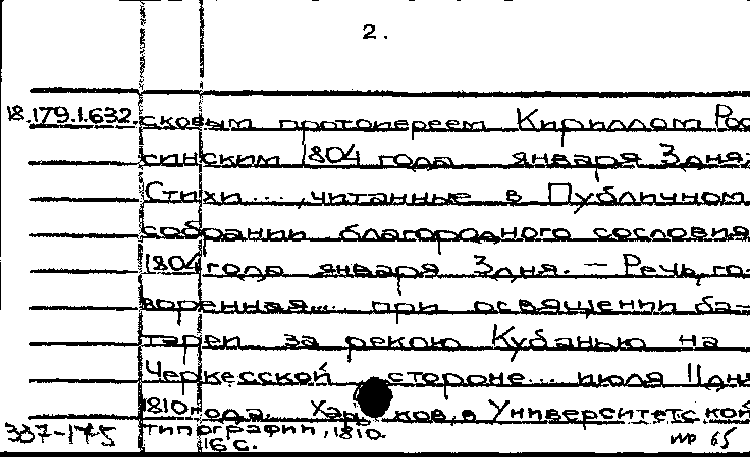 2.
18.179.1.632. сковым протоиереем Кириллом Рос
синским 1804 года января 3 дня;
Стихи..., читанные в Публичном
собрании благородного сословия
1804 года января 3 дня. — Речь, го-
воренная... при освящении ба-
тареи за рекою Кубанью на
Черкесской стороне... июля 11 дня
1810 года. Харьков, в Университетской
337-175 типографии, 1810.
16 с.
65